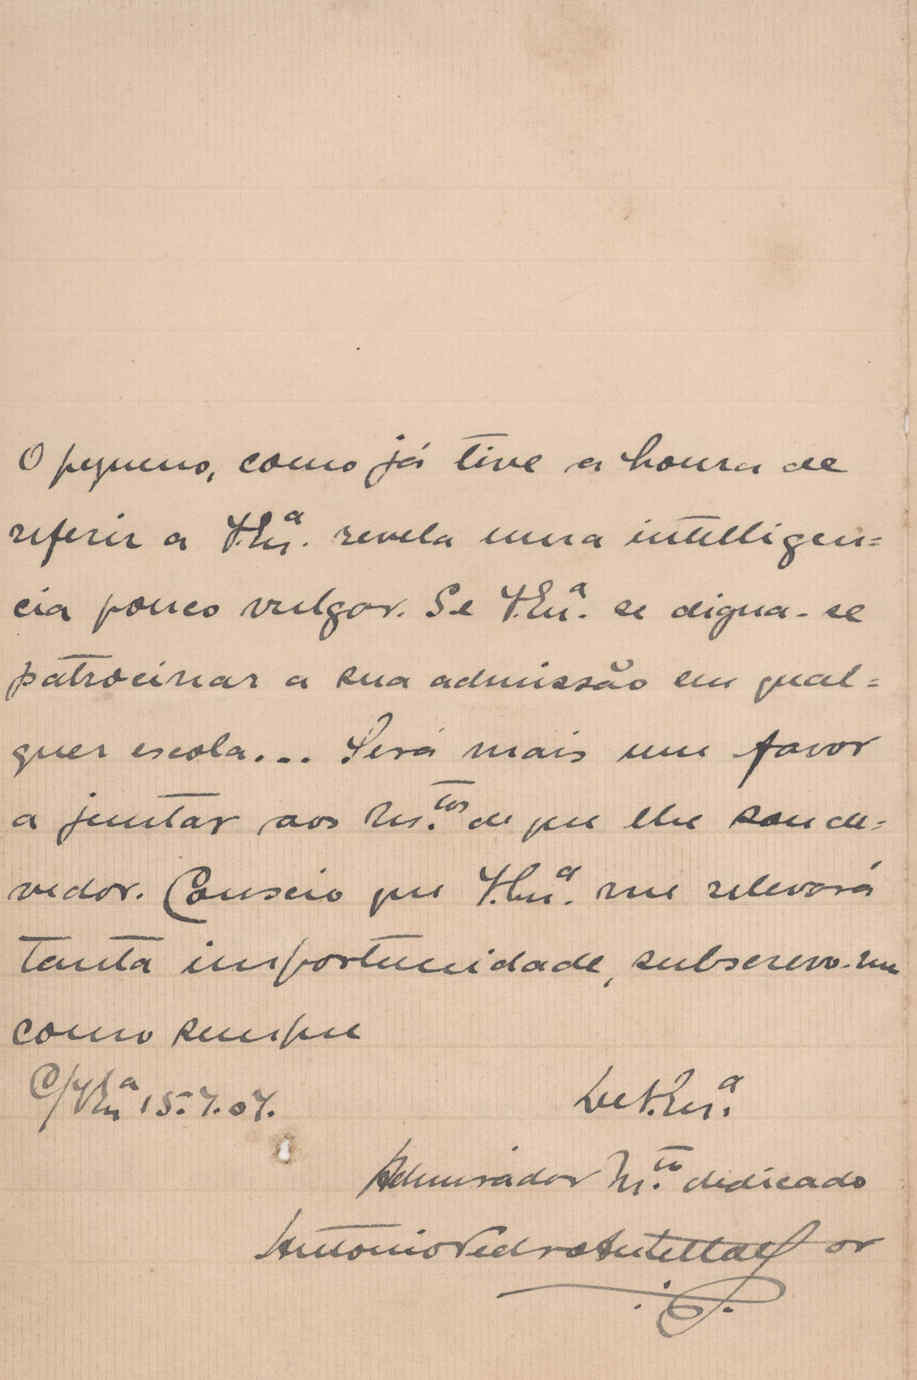 O pequeno, como já tive a honra de
referir a V. Ex.ª revela uma intelligen=
cia pouco vulgar. Se V. Ex.ª se digna-se
patrocinar a sua admissão em qual=
quer escola... Será mais um favor
a juntar aos m.tos de que lhe sou de=
vedor. Conscio que V. Ex.ª me relevará
tanta importunidade, subscrevo-me
como sempre
C/V Ex.ª 15.7.07.
De V. Ex.ª
Admirador M.to dedicado
Antonio Pedro